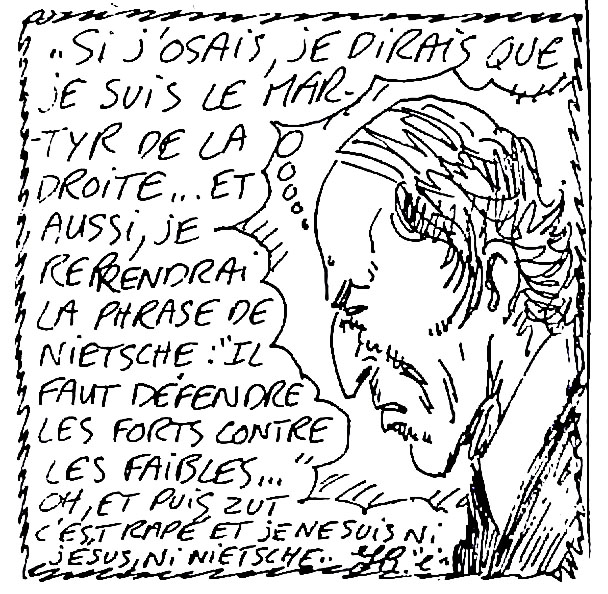 "SI J'OSAIS, JE DIRAIS QUE
JE SUIS LE MAR-
-TYR DE LA
DROITE... ET
AUSSI, JE
REPRENDRAI
LA PHRASE DE
NIETSCHE : "IL
FAUT DÉFENDRE
LES FORTS CONTRE
LES FAIBLES..."
OH, ET PUIS ZUT
C'EST RAPÉ ET JE NE SUIS NI
JÉSUS, NI NIETSCHE..